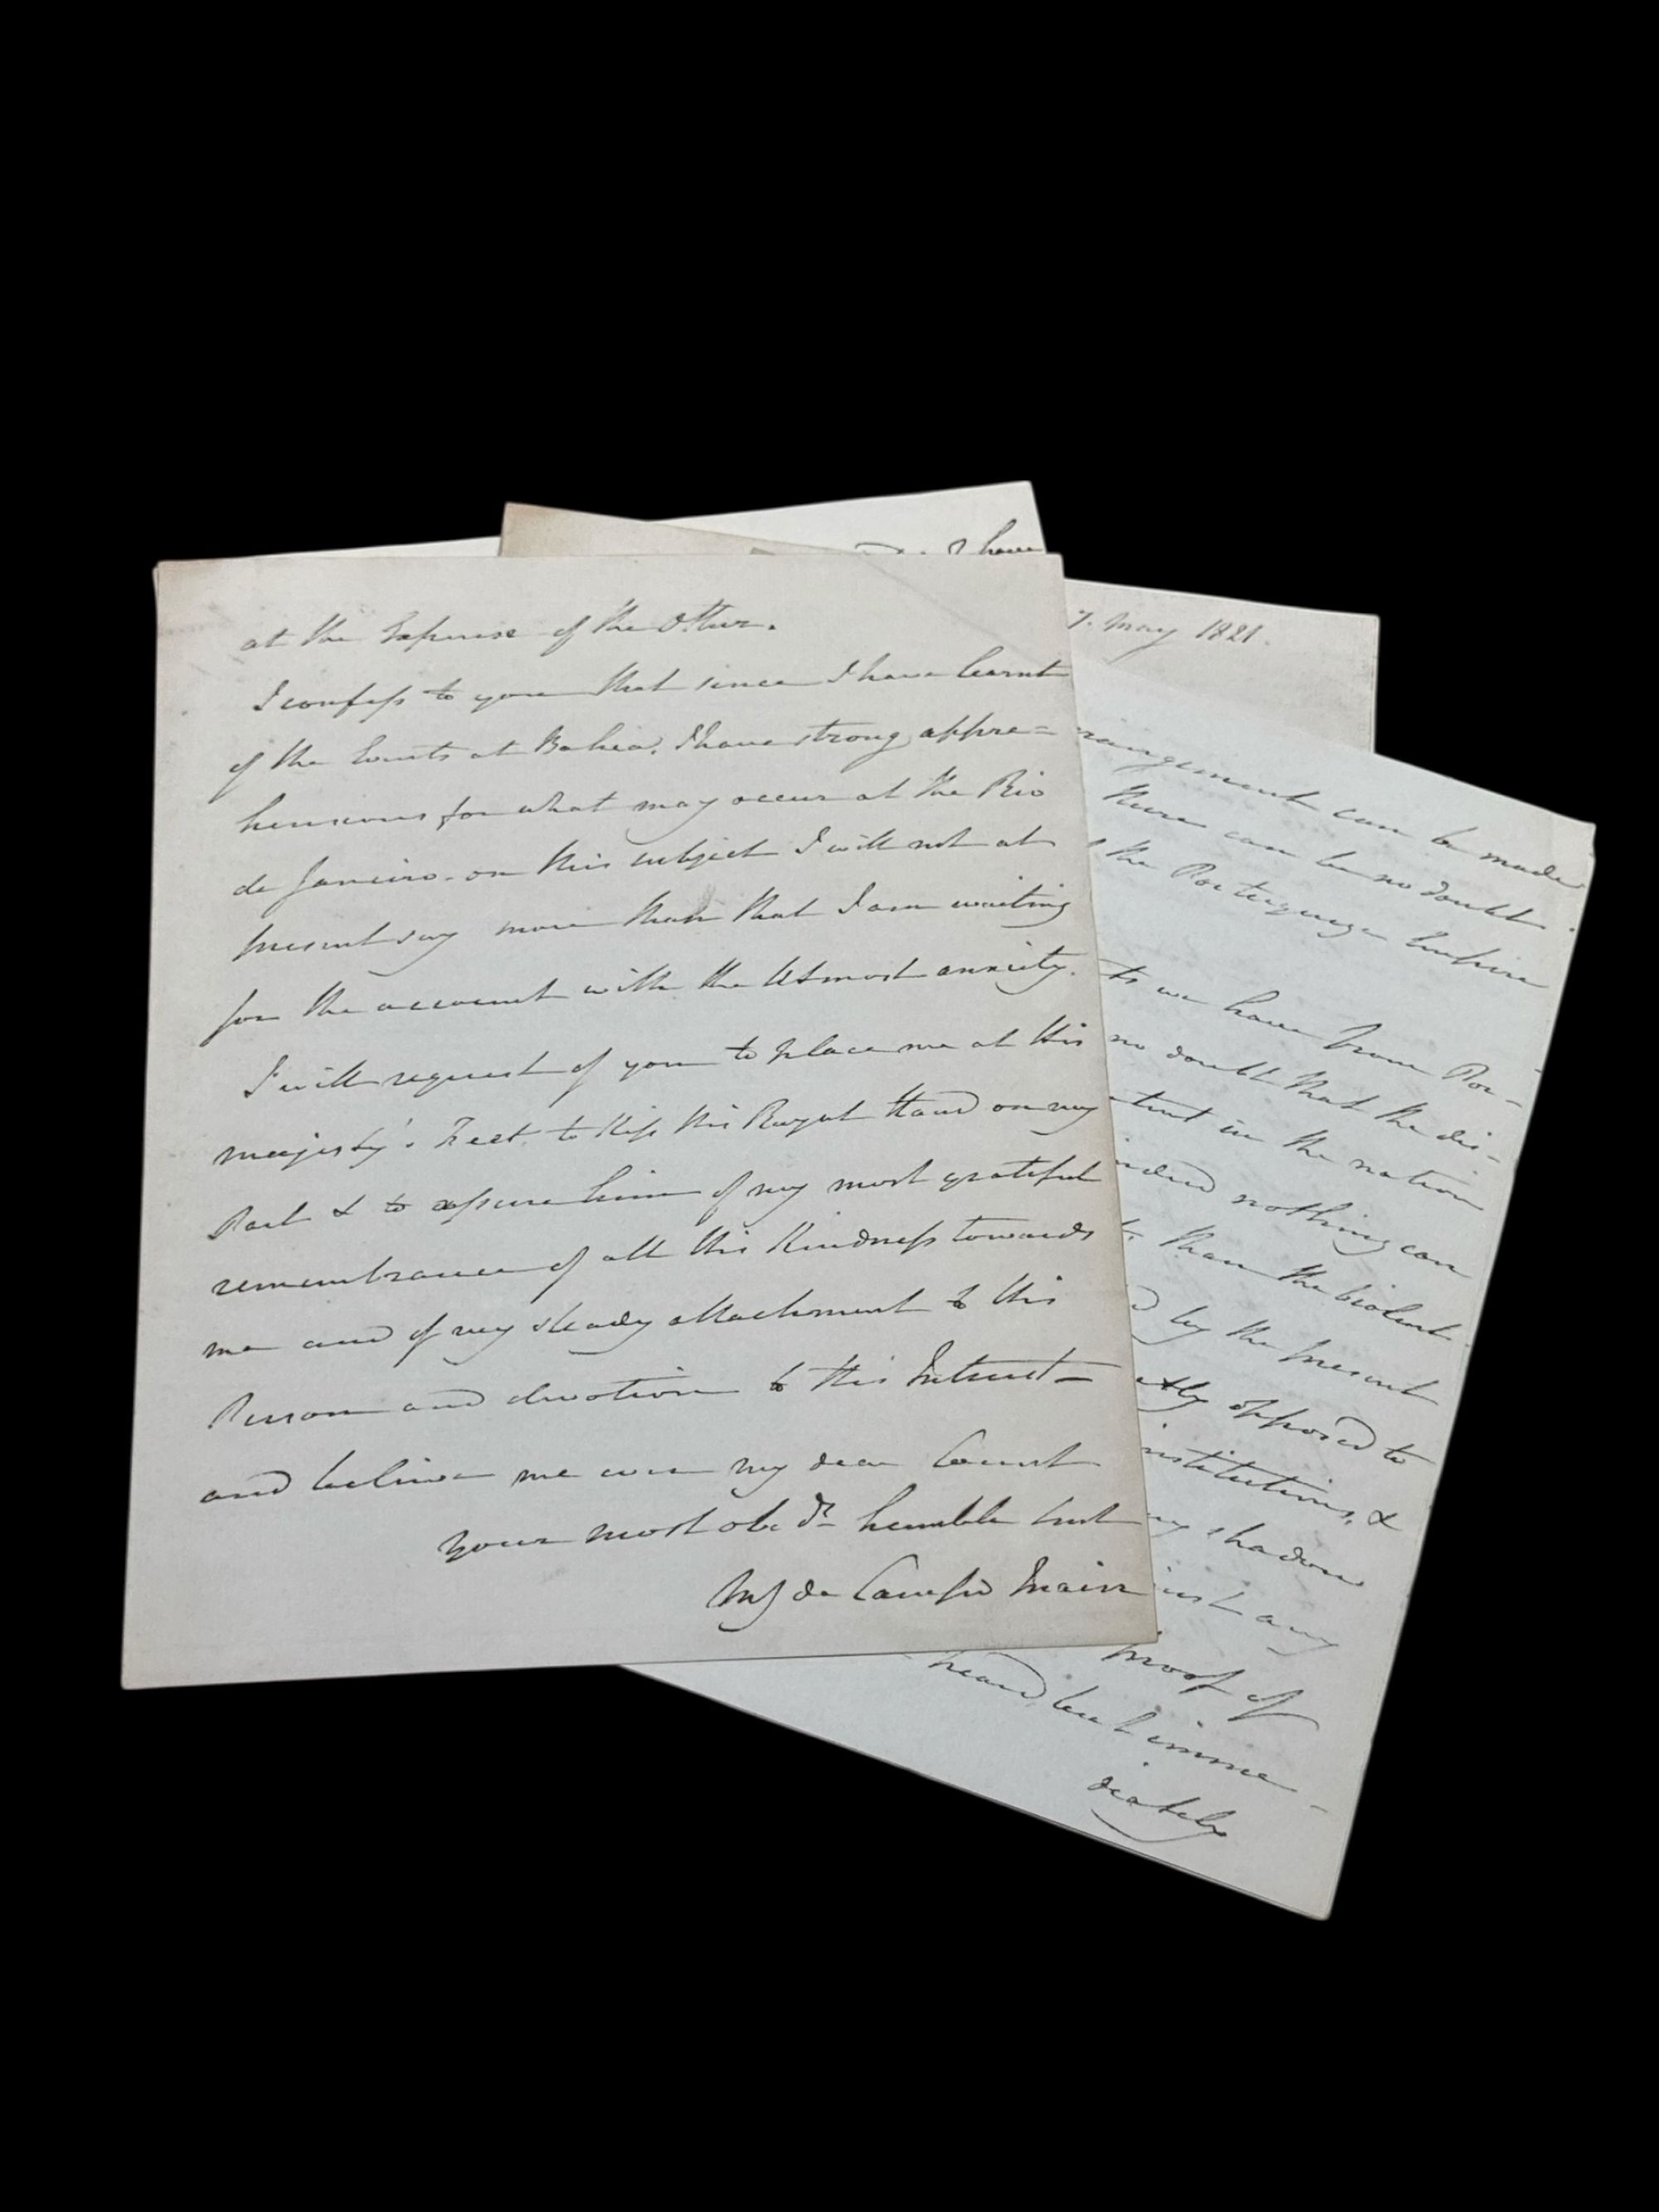 I have
7. May 1821.
at the Expense of the Other.
I confess to you that since I have learnt
of the Events at Bahia, I have strong appre=
hensions for what may occur at the Rio
de Janeiro - on this subject I will not at
present say more than that I am waiting
for the account with the Utmost anxiety.
I will request of you to place me at His
majesty's Feet to Kiss His Royal Hand on my
Part & to assure him of my most grateful
remembrance of all His Kindness towards
me and of my steady attachment to His
Person and devotion to His Interest =
and believe me ever my dear Count
your most obedt humble Servt
de Campo Maior
can be made
there can be no doubt.
the Portuguese Empire
we have from Por-
no doubt that the dis-
in the nation
nothing can
than the violent
by the present
opposed to
institutions, &
shadow
any
proof of
heard but imme-
diately